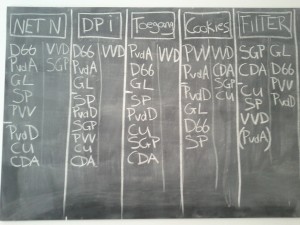 NET N DPI Toegang Cookies FilTER
D66 VVD
PvdA SGP
GL
SP
PVV
PvdD
CU
CDA
D66 VVD
PvdA
GL
SP
PvdD
SGP
PVV
CU
CDA
PvdA VVD
D66
GL
SP
PvdD
CU
SGP
CDA
PVV VVD
PvdA CDA
PvdD SGP
GL CU
D66
SP
SGP GL
CDA D66
CU PVV
SP PvdD
VVD
(PvdA)